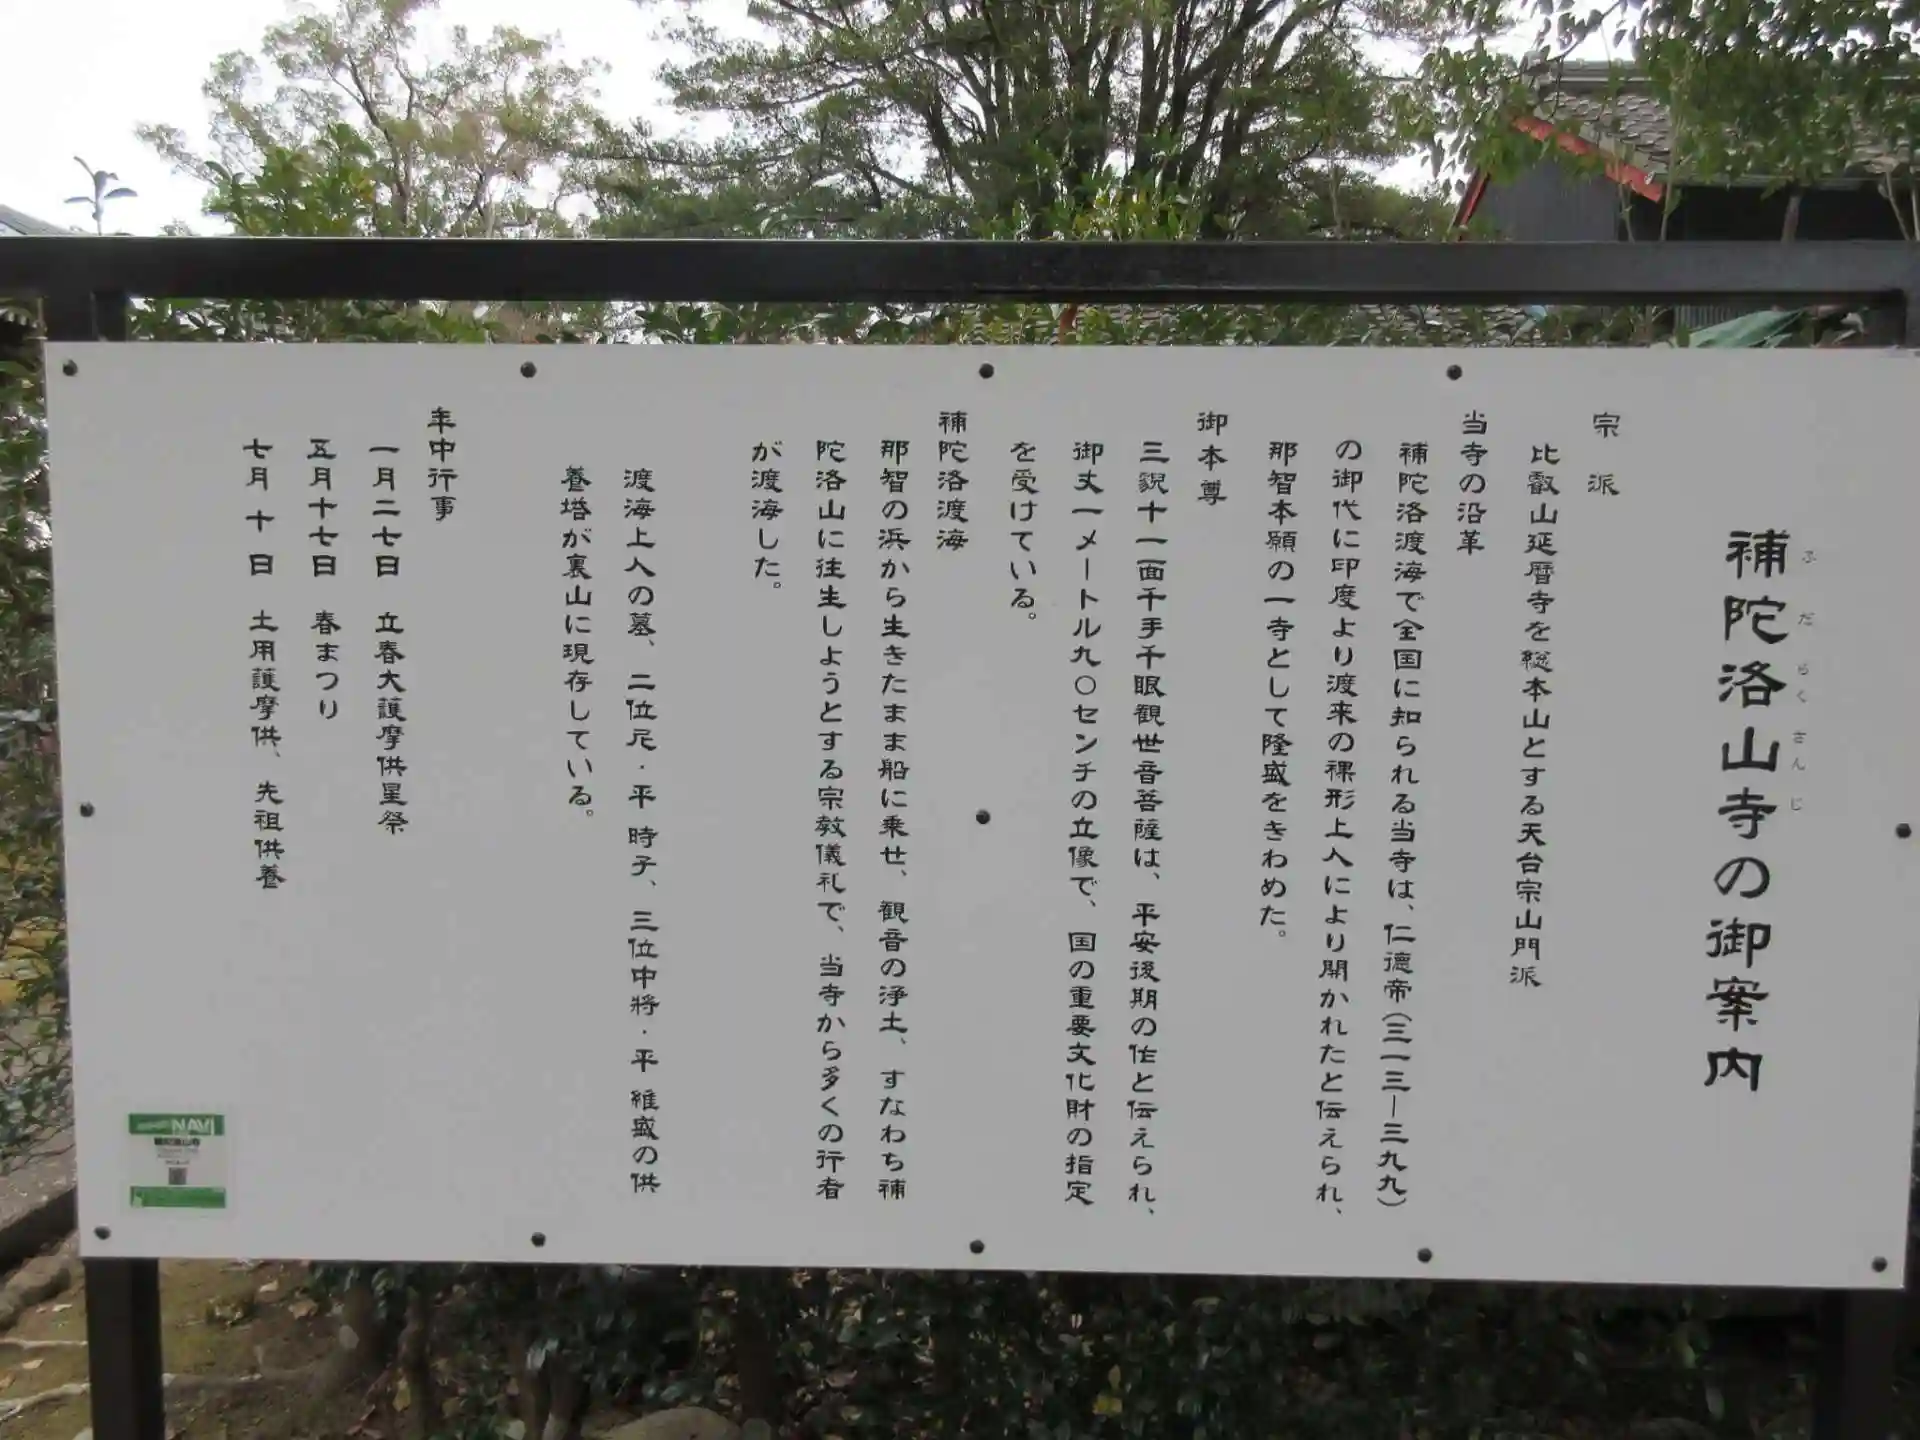 補陀洛山寺の御案内
ふだらくさんじ
宗派
比叡山延暦寺を総本山とする天台宗山門派
当寺の沿革
補陀洛渡海で全国に知られる当寺は、仁徳帝(三一三ー三九九)
の御代に印度より渡来の裸形上人により開かれたと伝えられ、
那智本願の一寺として隆盛をきわめた。
御本尊
三貌十一面千手千眼観世音菩薩は、平安後期の作と伝えられ、
御丈一メートル九〇センチの立像で、国の重要文化財の指定
を受けている。
補陀洛渡海
那智の浜から生きたまま船に乗せ、観音の浄土、すなわち補
陀洛山に往生しようとする宗教儀礼で、当寺から多くの行者
が渡海した。
渡海上人の墓、二位尼・平 時子、三位中将・平 維盛の供
養塔が裏山に現存している。
年中行事
一月二七日 立春大護摩供星祭
五月十七日 春まつり
七月十日 土用護摩供、先祖供養
NAVI
補陀洛山寺